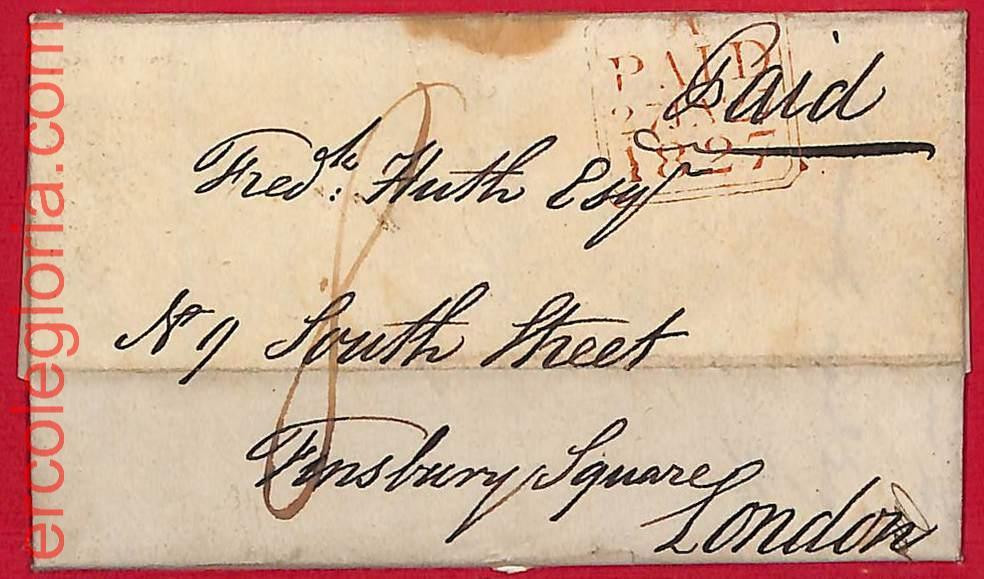 PAID
1827
Paid
Fred.k Huth Esqr
No 9 South Street
Finsbury Square
London
8
ercolegloria.com